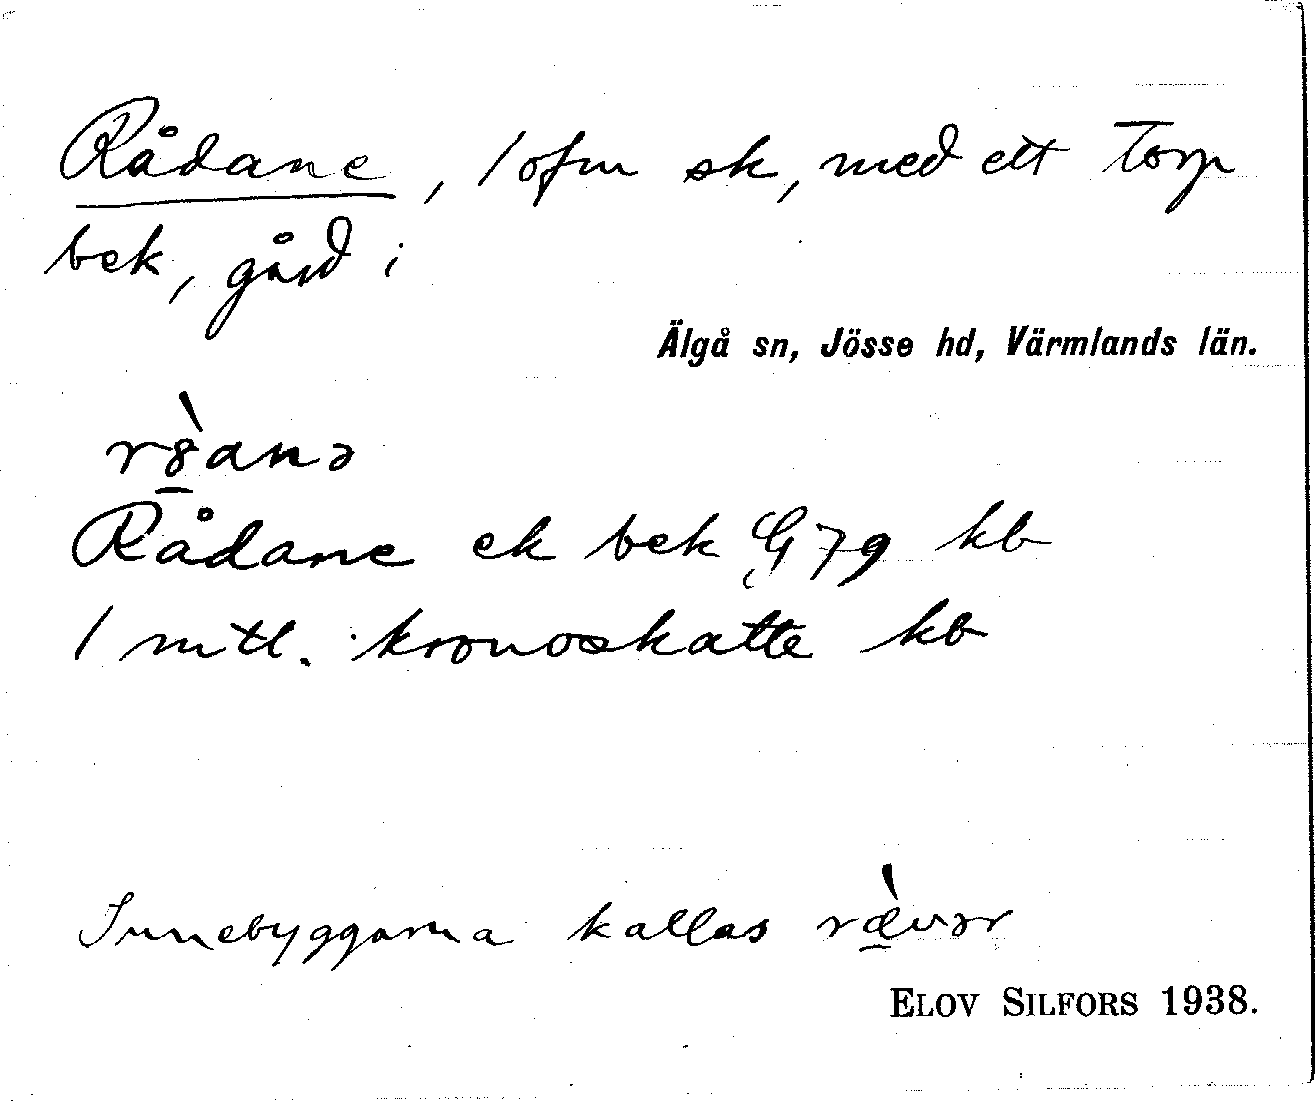 Rådane, 1 ofm sk, med ett Torp
bek, gård i
Älgå sn, Jösse hd, Värmlands län.
r8̲̀anə
Rådane ek bek G 79 kb
1 mtl. kronoskatte kb
Innebyggarna kallas ræ̲̀vər
ELOV SILFORS 1938.